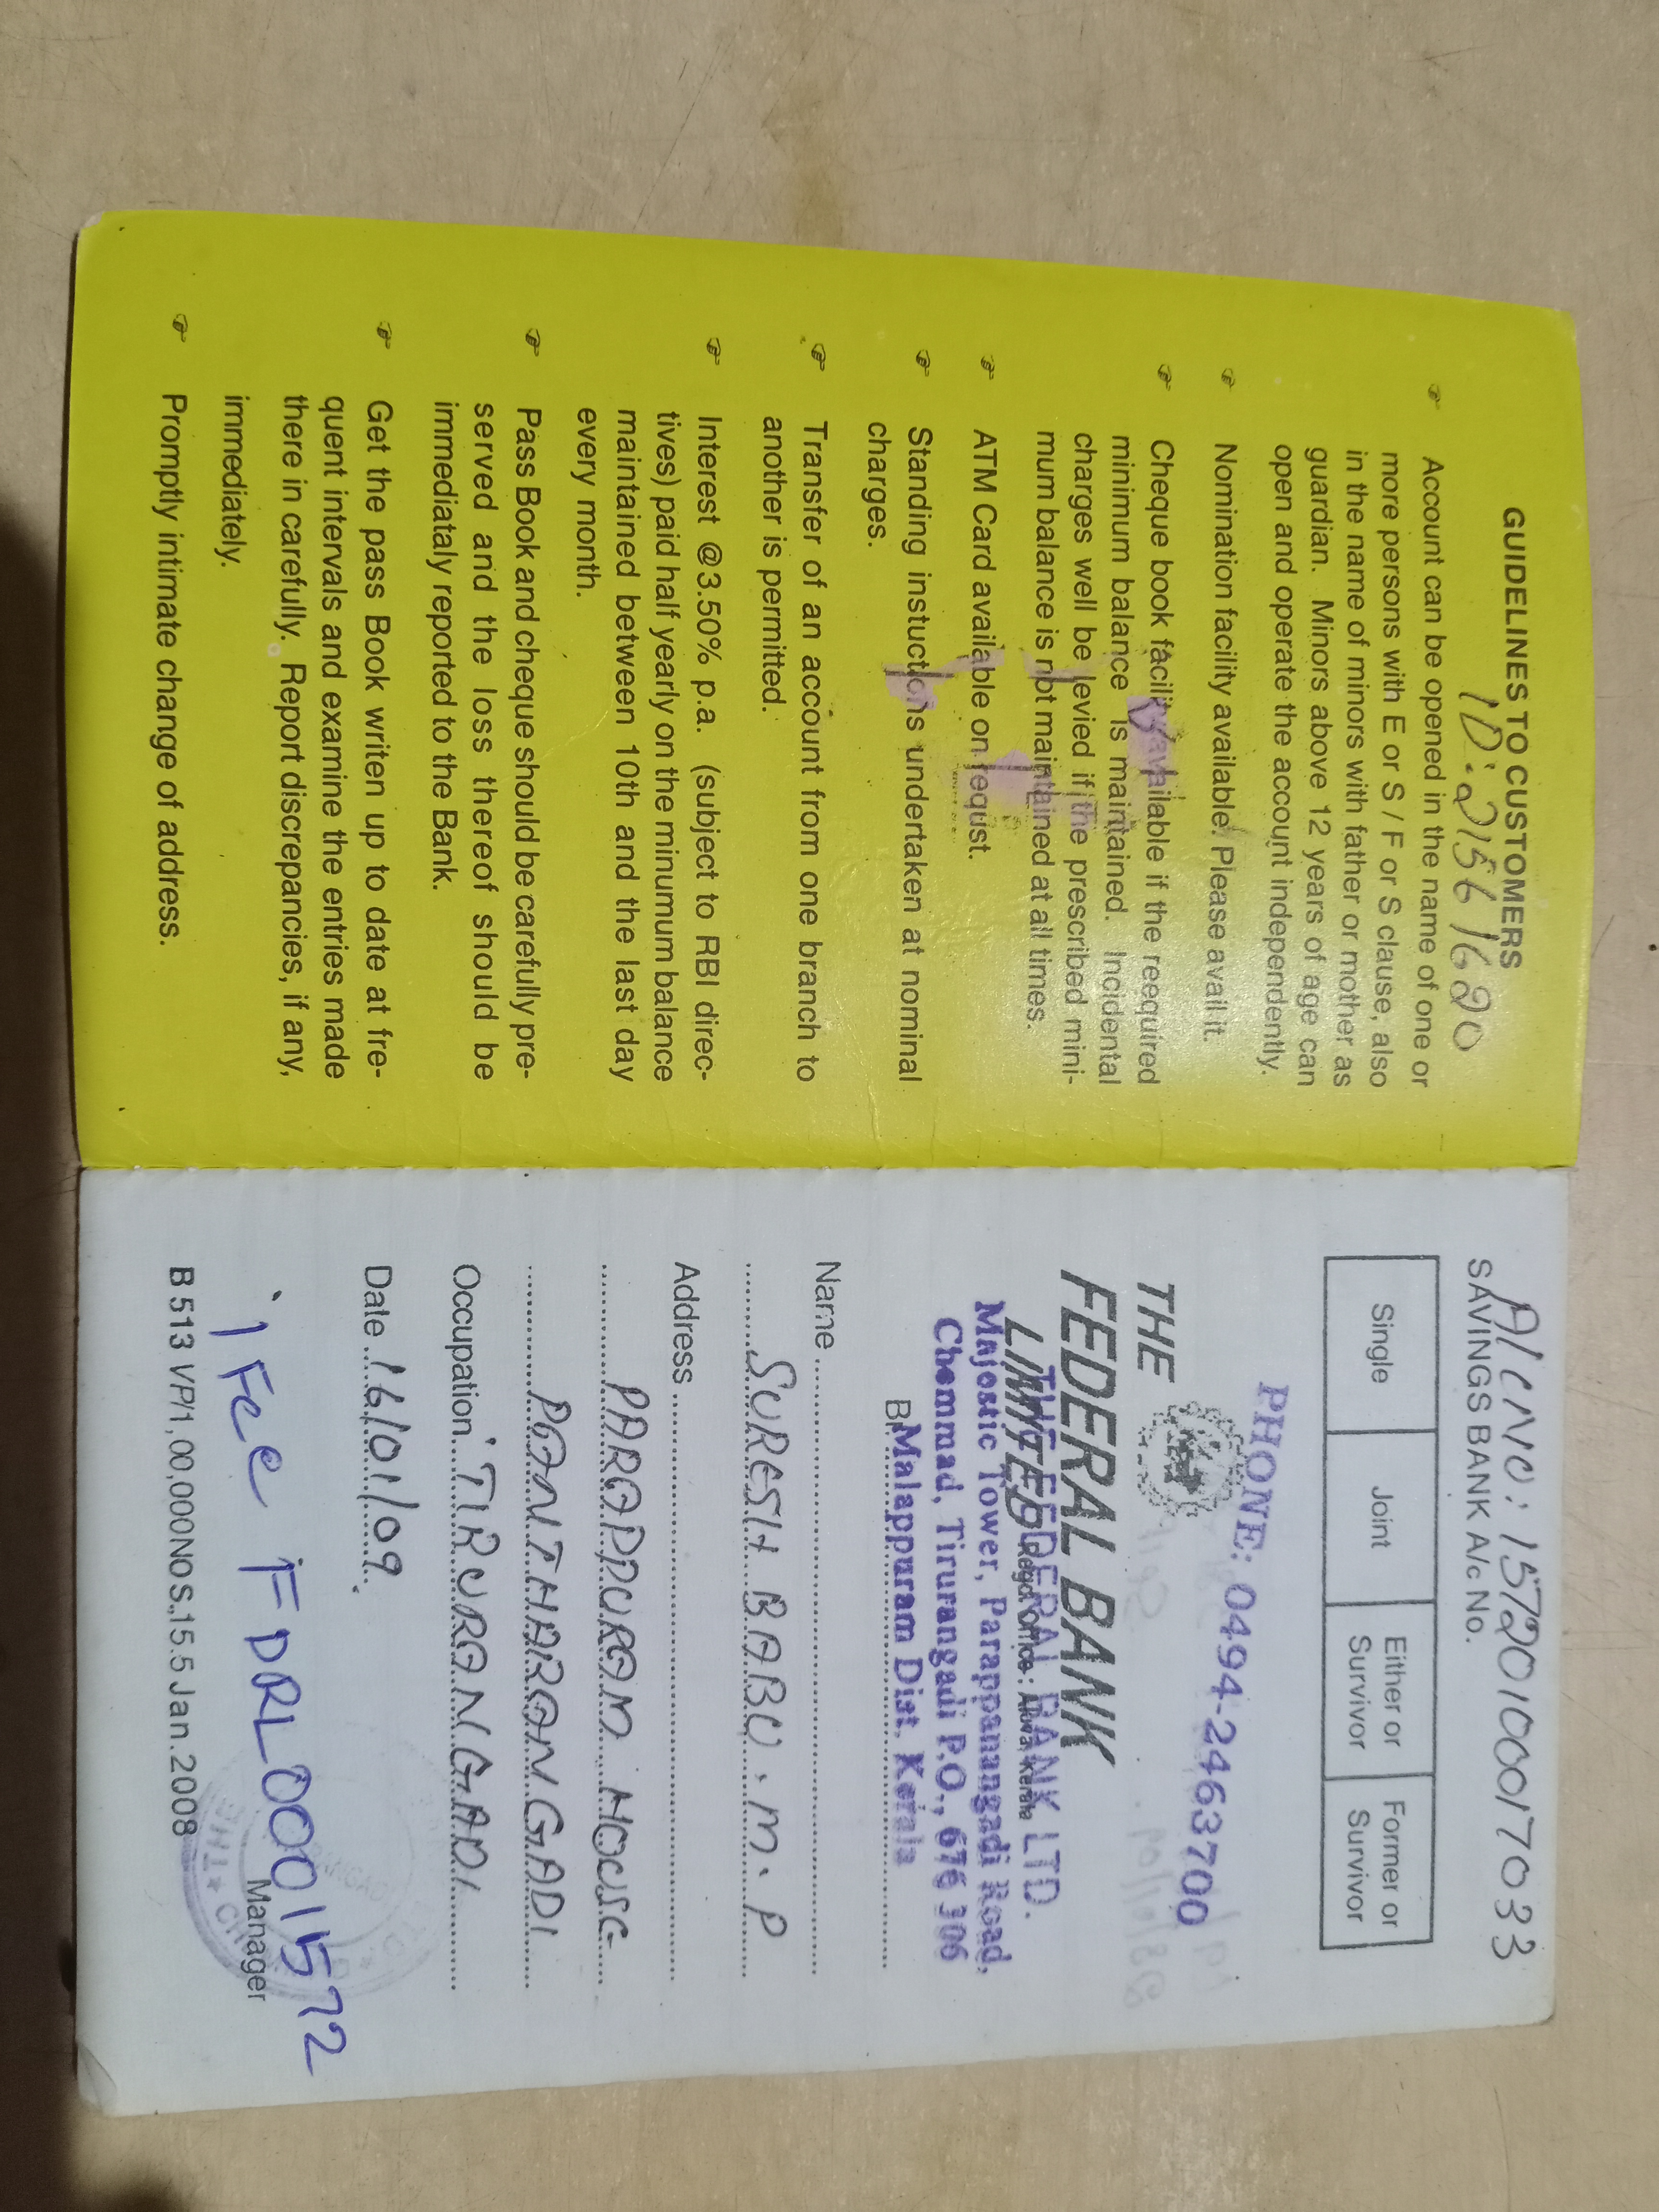 GUIDELINES TO CUSTOMERS
ID: 21561620
Account can be opened in the name of one or
more persons with E or S / F or S clause, also
in the name of minors with father or mother as
guardian. Minors above 12 years of age can
open and operate the account independently.
Nomination facility available. Please avail it.
Cheque book facility available if the reequired
minimum balance is maintained. Incidental
charges well be levied if the prescribed mini-
mum balance is not maintained at all times.
ATM Card available on requist.
Standing instuctions undertaken at nominal
charges.
Transfer of an account from one branch to
another is permitted.
Interest @3.50% p.a. (subject to RBI direc-
tives) paid half yearly on the minumum balance
maintained between 10th and the last day
every month.
Pass Book and cheque should be carefully pre-
served and the loss thereof should be
immediataly reported to the Bank.
Get the pass Book writen up to date at fre-
quent intervals and examine the entries made
there in carefully. Report discrepancies, if any,
immediately.
Promptly intimate change of address.
A/c NO: 15720100017033
SAVINGS BANK A/c No.
Single Joint Either or Survivor Former or Survivor
PHONE: 0494-2463700
THE
FEDERAL BANK
LIMITED Regd. office : Aluva, Kerala
THE FEDERAL BANK LTD.
Majestic Tower, Parappanangadi Road,
Chemmad, Tirurangadi P.O., 676 306
Malappuram Dist. Kerala
Name
SURESH BABU . M . P
Address
PARAPPURAM HOUSE
PANTHARANGADI
Occupation TIRURANGADI
Date 16/01/09
IFCe FDRL0001572
Manager
B 513 VP/1,00,000NOS.15.5 Jan.2008